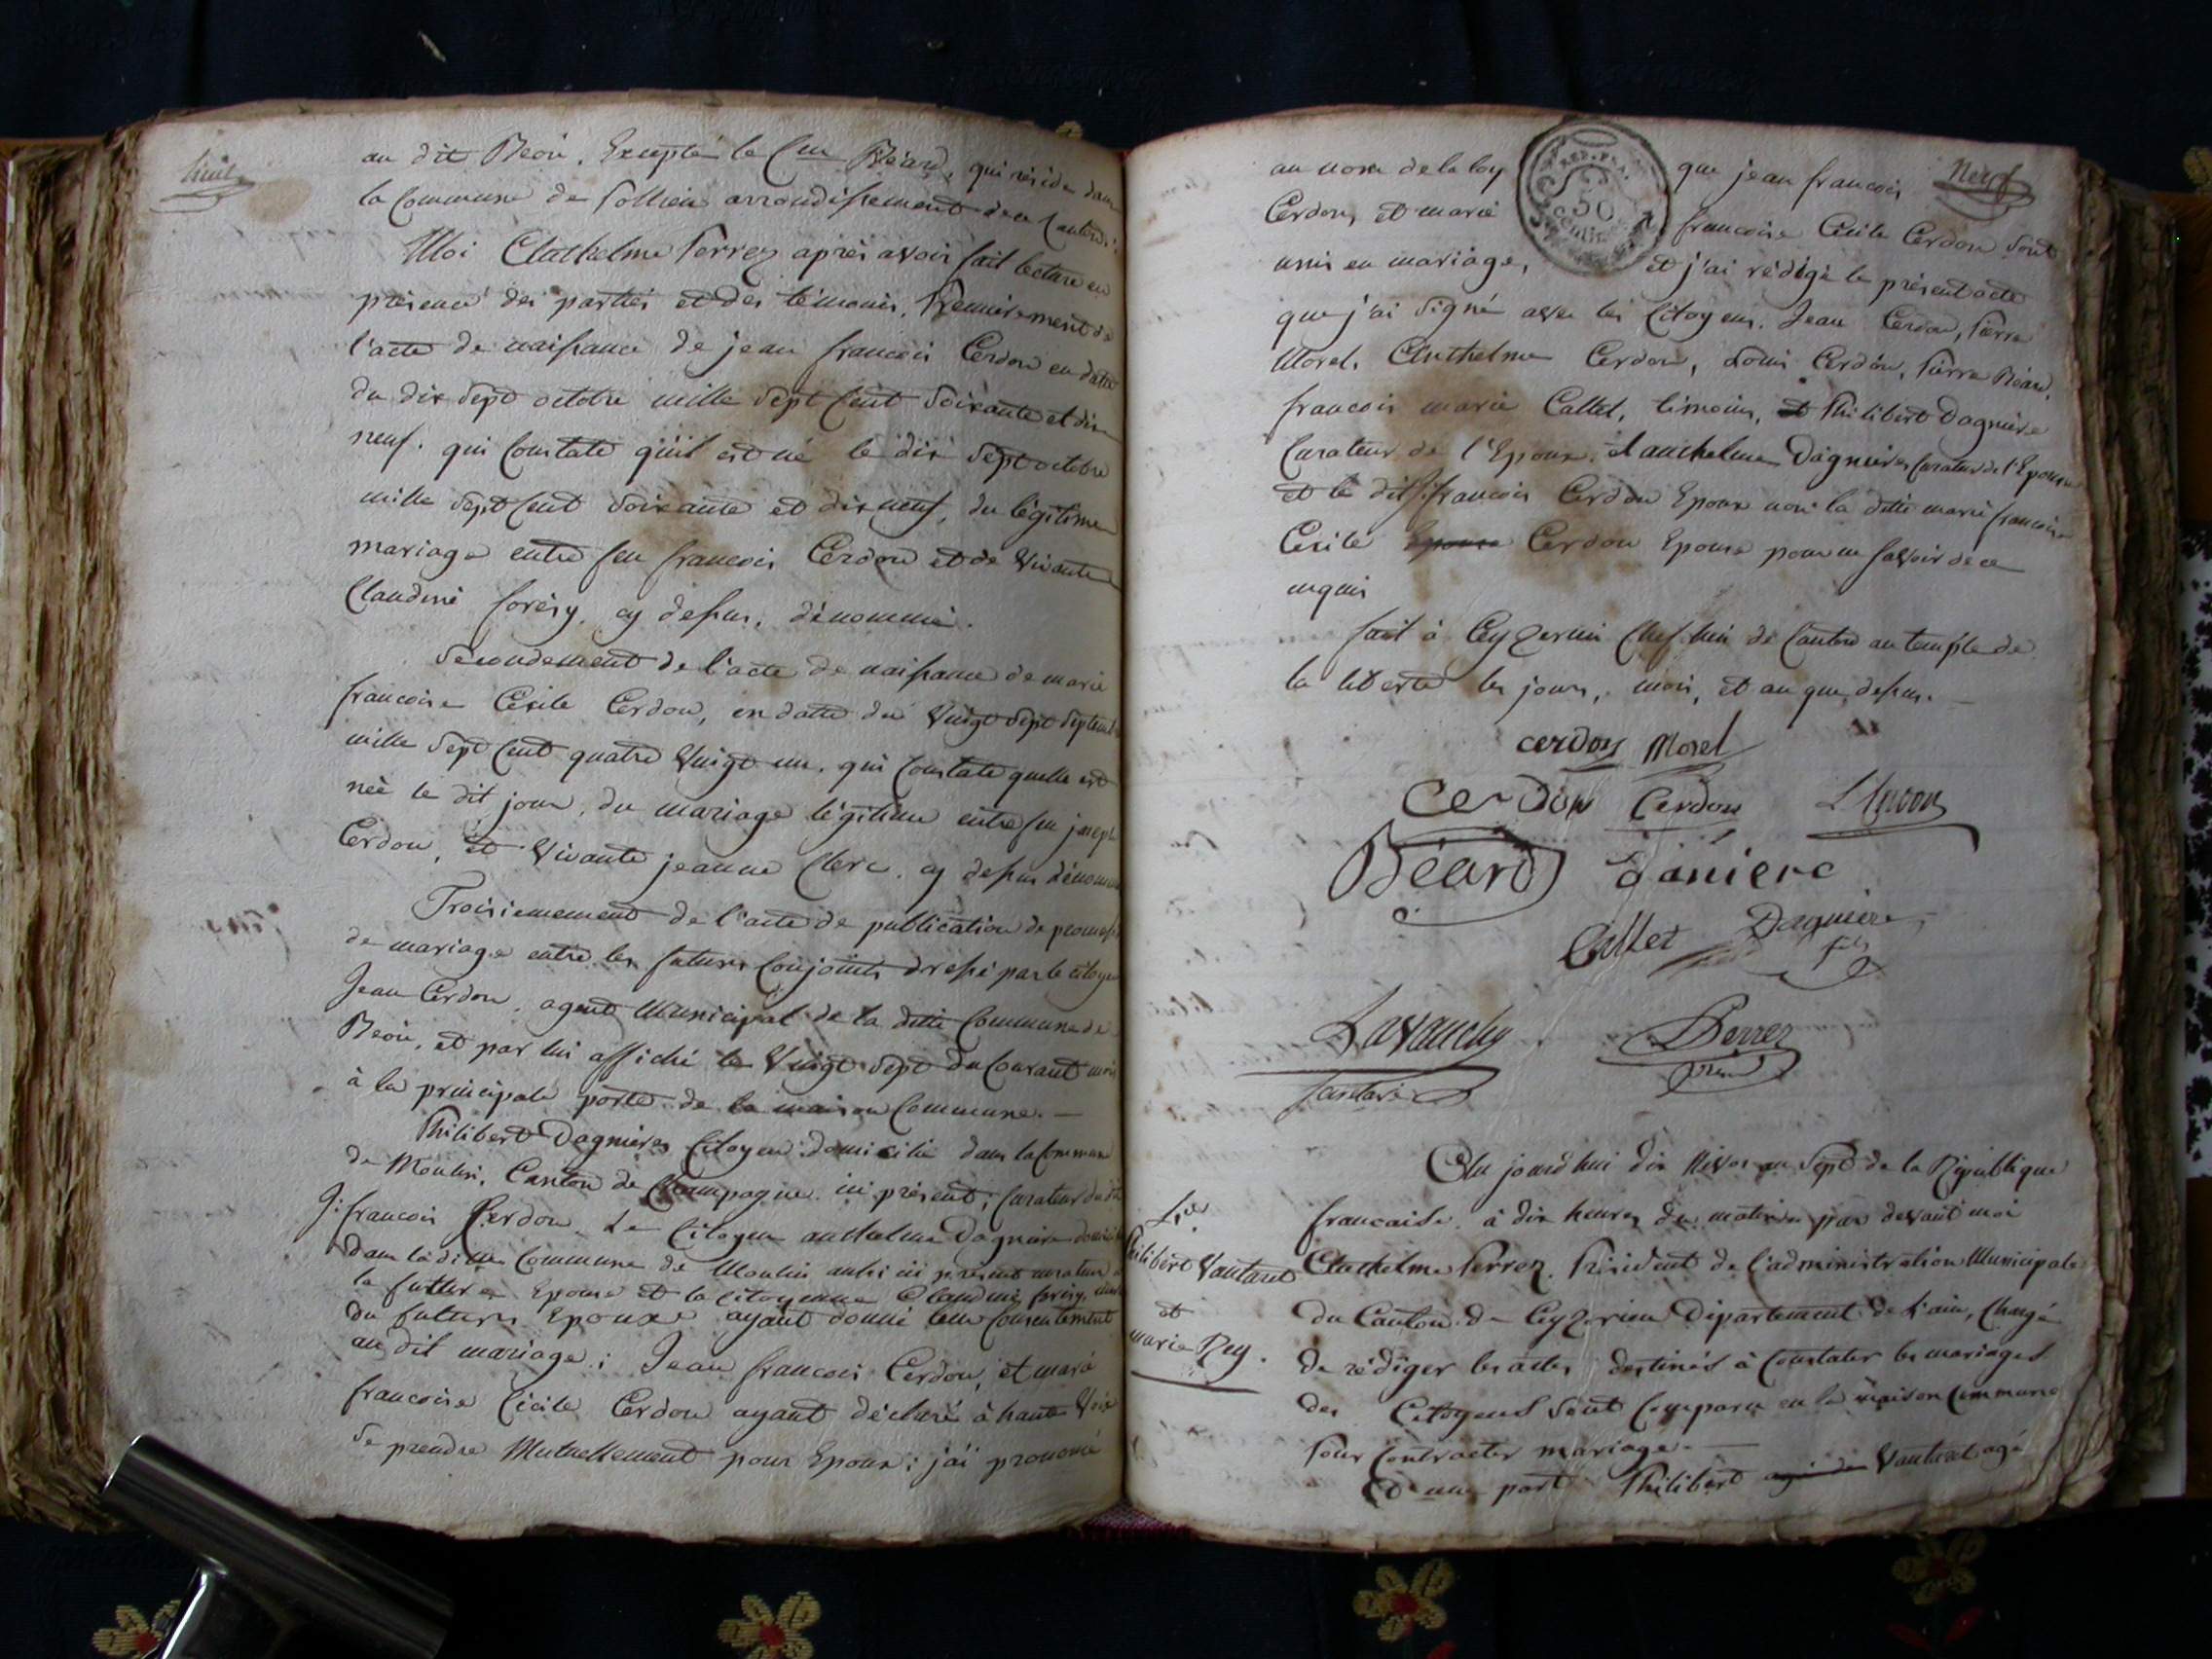 huit
au dit Béon, Excepté le Cen Béard, qui réside dans
la Commune de Pollieu arrondissement de ce Canton.
Moi Anthelme Perrez après avoir fait lecture en
présence des parties et des témoins, Premièrement de
l'acte de naissance de jean francois Cerdon en datte
du dix sept octobre mille sept Cent soixante et dix
neuf. qui Constate qu'il est né le dix sept octobre
mille sept Cent soixante et dix neuf, du légitime
mariage entre feu francois Cerdon et de vivante
Claudine forésy, cy dessus, dénommé.
Sécondement de l'acte de naissance de marie
francoise Cécile Cerdon, en datte du vingt sept septemb
mille sept Cent quatre vingt un, qui Constate quelle est
née le dit jour, du mariage légitime entre feu joseph
Cerdon, et vivante jeanne Clerc. cy dessus dénommé
Troisiemement de l'acte de publication de promesse
de mariage entre les futurs Conjoints dressé par le citoyen
Jean Cerdon, agent Municipal de la ditte Commune de
Béon, et par lui affiché le vingt sept du Courant mois
à la principale porte de la maison Commune. —
Philibert Dagnieres Citoyen domicilié dans la Commune
de Moulin, Canton de Champagne ici présent, Curateur du dit
J: francois Cerdon. Le Citoyen anthelme Dagniere domicilié
dans la ditte Commune de Moulin aussi ici présent curateur de
la future Epouse et la citoyenne Claudine forésy, mère
du futur Epoux ayant donné leur Consentement
au dit mariage; Jean francois Cerdon, et marie
francoise Cécile Cerdon ayant déclaré à haute voix
se prendre Mutuellement pour Epoux; j'ai prononcé
Neuf
au nom de la loy que jean francois
Cerdon, et marie francoise Cécile Cerdon sont
unis en mariage, et j'ai rédigé le présent acte
que j'ai signé avec les Citoyens. Jean Cerdon, Pierre
Morel, Anthelme Cerdon, Louis Cerdon, Pierre Béard,
francois marie Callet, témoins, et Philibert Dagniere
Curateur de l'Epoux, et anthelme Dagnieres Curateur de l'Epouse
et le dit J: francois Cerdon Epoux non la ditte marie francoise
Cécile Epouse Cerdon Epouse pour ne savoir de ce
enquis
fait à Ceyzerieu Chef lieu de Canton au temple de
la liberté les jours, mois, et an que dessus.
cerdon Morel
Cerdon Cerdon
Béard daniere
Callet Dagniere
fils
Lavauchy Perrez
Au jourd'hui dix Nivos an sept de la République
francaise à dix heures du matin par devant moi
Anthelme Perrez, Président de l'administration Municipale
du Canton de Ceyzerieu Département de l'ain, Chargé
de rédiger les actes destinés à Constater les mariages
des Citoyens sont Comparu en la maison Commune
Pour Contracter mariage. —
D'une part Philibert Vautaret agé
Philibert Vautaret
et
marie Rey.